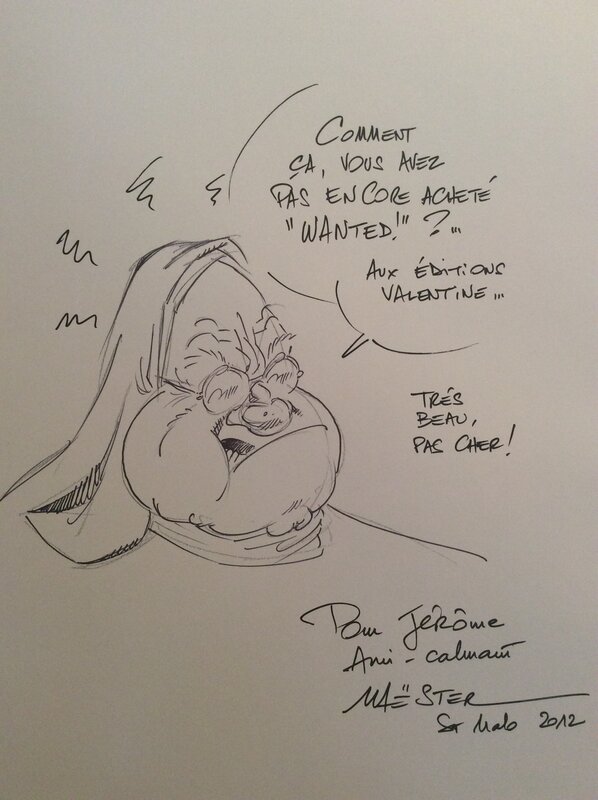 COMMENT
ÇA, VOUS AVEZ
PAS ENCORE ACHETÉ
"WANTED!" ?...
AUX ÉDITIONS
VALENTINE...
TRÉS
BEAU,
PAS CHER !
Pour JÉRÔME
Ami-calmant
MAËSTER
St Malo 2012